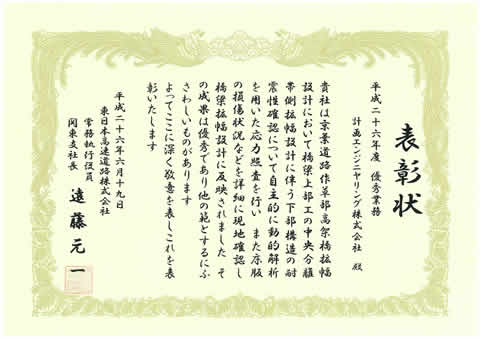 表彰状
平成二十六年度 優秀業務
計画エンジニヤリング株式会社 殿
貴社は京葉道路作草部高架橋拡幅
設計において橋梁上部工の中央分離
帯側拡幅設計に伴う下部構造の耐
震性確認について自主的に動的解析
を用いた応力照査を行い また床版
の損傷状況などを詳細に現地確認し
橋梁拡幅設計に反映されました そ
の成果は優秀であり他の範とするにふ
さわしいものがあります
よってここに深く敬意を表しこれを表
彰いたします
平成二十六年六月十九日
東日本高速道路株式会社
常務執行役員
関東支社長
遠藤元一